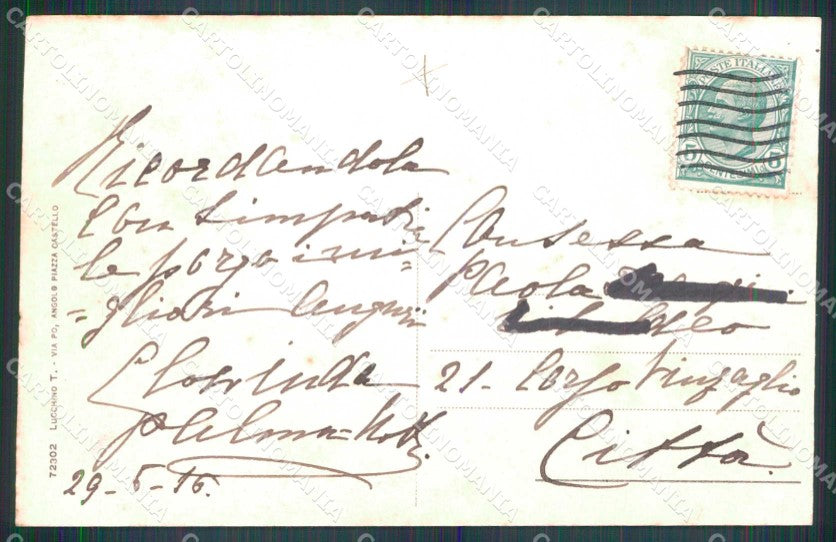 Ricordandola
con simpatia
le porgo i mi=
=gliori auguri
Clorinda
Palma=
29-5-16.
Contessa
Paola
21- Corso Vinzaglio
Città.
POSTE ITALIANE
5 CENTESIMI 5
72302 LUCCHINO T. - VIA PO, ANGOLO PIAZZA CASTELLO
CARTOLINOMANIA